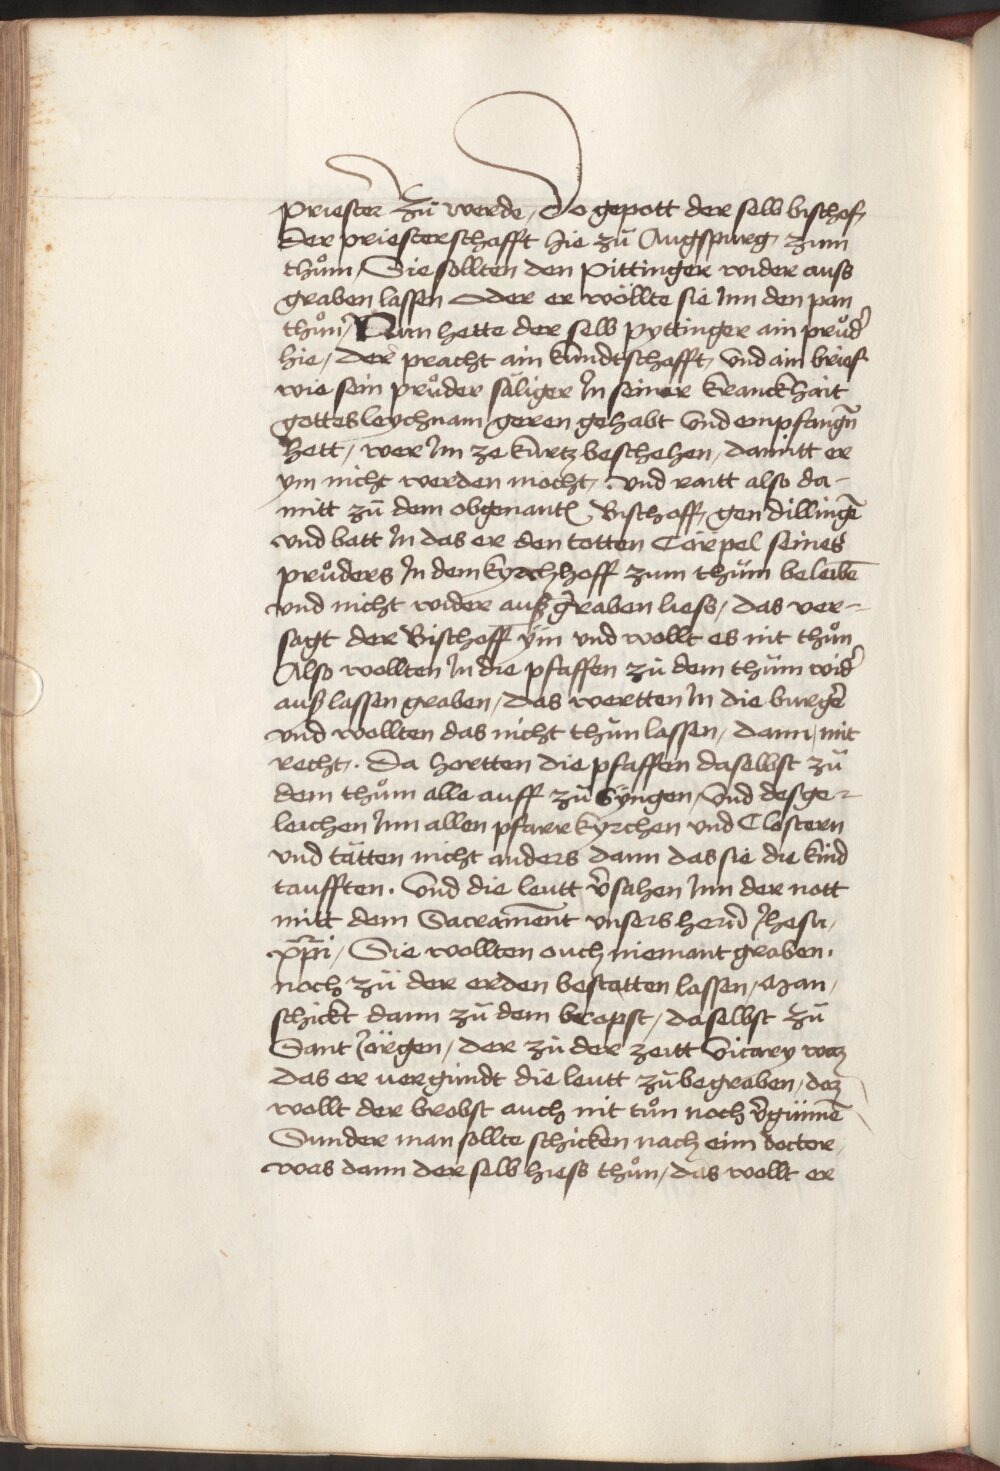 priester zů werde, Do gepott der selb bischof,
der priesterschafft hie zů Augspurg, zum
thům, Sie sollten den Pittinger wider auss
graben lassen Oder er wöllte sie Inn den pan
thůn, Nun hette der selb pyttinger ain průdʾ
hie, der pracht ain kundtschafft, vnd ain brief
wie sein průder säliger In seiner kranckhait
gottes leychnam geren gehabt vnd empfangñ
hett, wer Im ze kurtz beschehen, damitt er
ym nicht werden mocht, . vnd raitt also da-
mitt zů dem obgenantẽ Bischoff, gen dillingẽ
vnd batt In das er den totten Cörpel seines
průders In dem kyrchhoff zum thům beleibẽ
vnd nicht wider auß graben liess, das ver-
sagt der Bischoff ym vnd wollt es nit thůn
Also wollten In die pfaffen zů dem thům widʾ
auß lassen graben, das wertten In die burgẽ
vnd wollten das nicht thůn lassen, dann mit
recht. Da hortten die pfaffen daselbst zů
dem thům alle auff zů syngen, vnd desge-
leichen Inn allen pfarrkyrchen vnd Clostern
vnd tätten nicht anders dann das sie die kind
taufften. Vnd die leutt v̾sahen Inn der nott
mitt dem Sacrament vnsers herñ Jhesu,
xp̃i, Sie wollten ouch niemant graben.
noch zů der erden bestatten lassen, Man,
schickt dann zů dem bropst, daselbst zů
Sant Jörgen, der zů der zeitt Vicary waz
das er vergundt die leutt zů begraben, daz
wollt der brobst auch nit tůn noch v̾günnẽ
Sunder man sollte schicken nach eim doctor,
was dann der selb hiess thůn, das wollt er